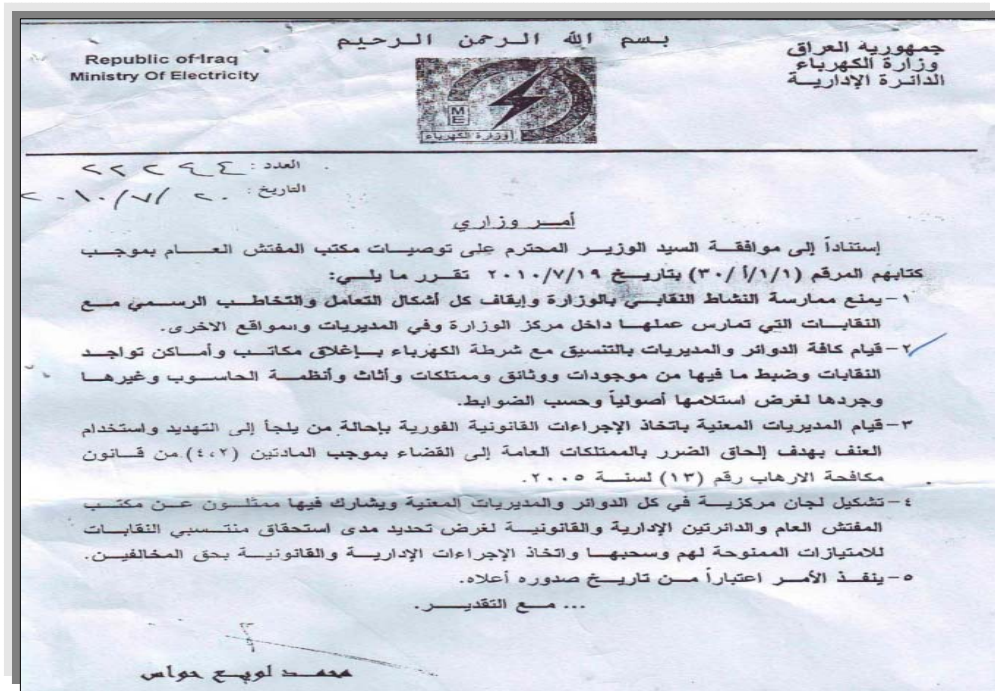 بسم الله الرحمن الرحيم
Republic of Iraq
Ministry Of Electricity
جمهورية العراق
وزارة الكهرباء
الدائرة الإدارية
ME
وزارة الكهرباء
العدد : ٢٢٢٤٤
التاريخ : ٢٠/٧/٢٠١٠
أمـر وزاري
إستناداً إلى موافقة السيد الوزير المحترم على توصيات مكتب المفتش العام بموجب
كتابهم المرقم (٣٠/أ/١/١) بتاريخ ٢٠١٠/٧/١٩ تقرر ما يلي:
١-يمنع ممارسة النشاط النقابي بالوزارة وإيقاف كل أشكال التعامل والتخاطب الرسمي مع
النقابات التي تمارس عملها داخل مركز الوزارة وفي المديريات والمواقع الاخرى.
٢-قيام كافة الدوائر والمديريات بالتنسيق مع شرطة الكهرباء بإغلاق مكاتب وأماكن تواجد
النقابات وضبط ما فيها من موجودات ووثائق وممتلكات وأثاث وأنظمة الحاسوب وغيرها
وجردها لغرض استلامها أصولياً وحسب الضوابط.
٣-قيام المديريات المعنية باتخاذ الإجراءات القانونية الفورية بإحالة من يلجأ إلى التهديد واستخدام
العنف بهدف إلحاق الضرر بالممتلكات العامة إلى القضاء بموجب المادتين (٤،٢) من قانون
مكافحة الارهاب رقم (١٣) لسنة ٢٠٠٥.
٤-تشكيل لجان مركزية في كل الدوائر والمديريات المعنية ويشارك فيها ممثلون عن مكتب
المفتش العام والدائرتين الإدارية والقانونية لغرض تحديد مدى استحقاق منتسبي النقابات
للامتيازات الممنوحة لهم وسحبها واتخاذ الإجراءات الإدارية والقانونية بحق المخالفين.
٥-ينفذ الأمر اعتباراً من تاريخ صدوره أعلاه.
... مع التقدير.
محمد لويح حواس